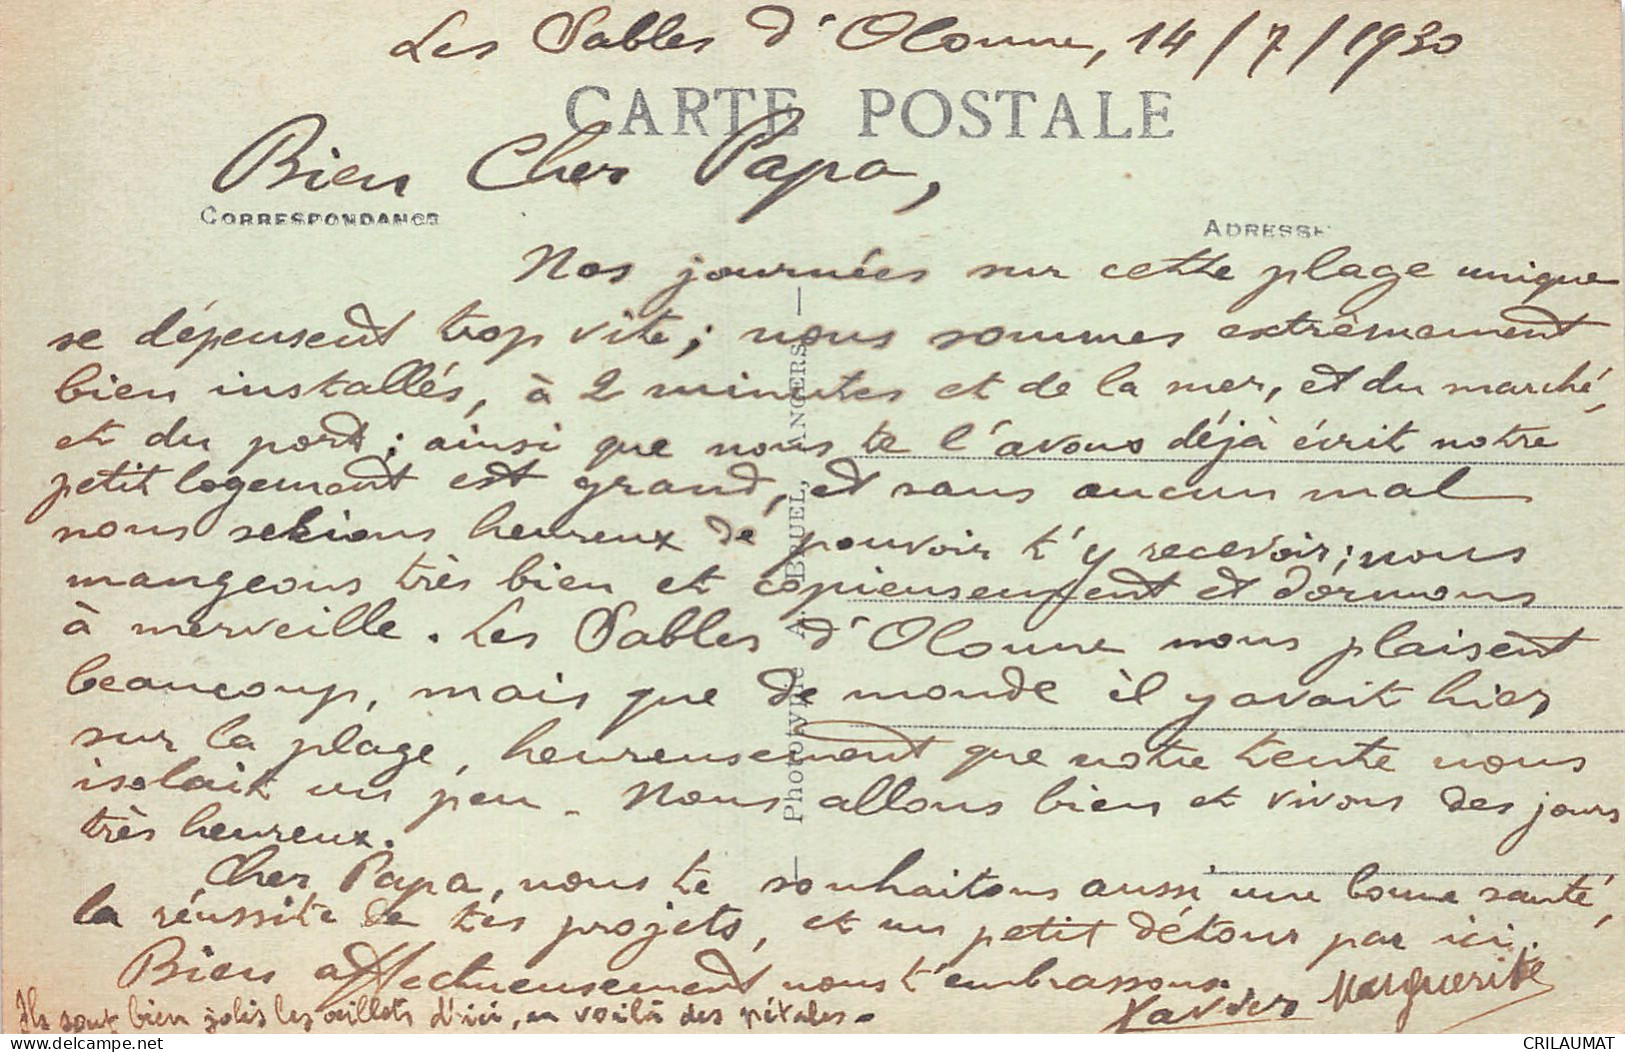 Les Sables d'Olonne, 14/7/1930
CARTE POSTALE
Bien Cher Papa,
CORRESPONDANCE
ADRESSE
Nos journées sur cette plage unique
se dépensent trop vite; nous sommes extrêmement
bien installés, à 2 minutes et de la mer, et du marché,
et du port; ainsi que nous te l'avons déjà écrit notre
petit logement est grand, et sans aucun mal
nous serions heureux de pouvoir t'y recevoir; nous
mangeons très bien et copieusement et dormons
à merveille. Les Sables d'Olonne nous plaisent
beaucoup, mais que de monde il y avait hier
sur la plage, heureusement que notre tente nous
isolait un peu. Nous allons bien et vivons des jours
très heureux.
Cher Papa, nous te souhaitons aussi une bonne santé,
la réussite de tes projets, et un petit détour par ici.
Bien affectueusement nous t'embrassons.
Xavier Marguerite
Ils sont bien jolis les œillets d'ici, en voilà des pétales.
Phototypie A. BRUEL, ANGERS
CRILAUMAT